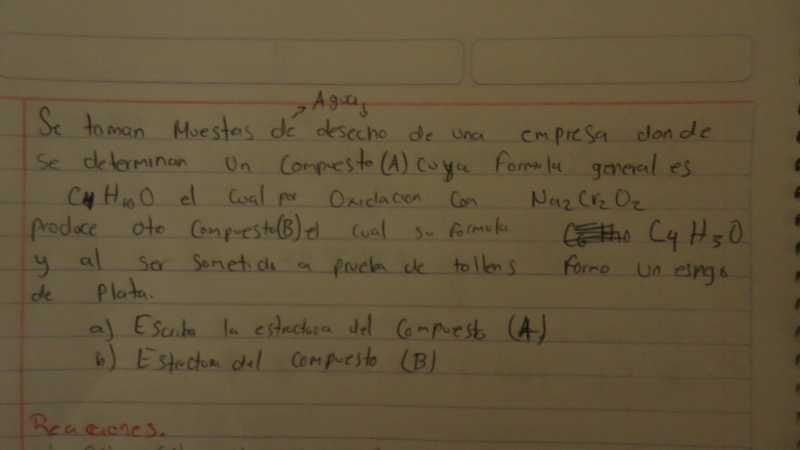 Aguas
Se toman Muestas de desecho de una empresa donde
se determinan un compuesto (A) cuya formula general es
C4H10O el cual por Oxidacion con Na2Cr2O2
produce oto compuesto(B) el cual su formula C4H5O
y al ser sometido a prueba de tollens formo un espejo
de plata.
a) Escriba la estructura del compuesto (A)
b) Estructura del compuesto (B)
Reacciones.